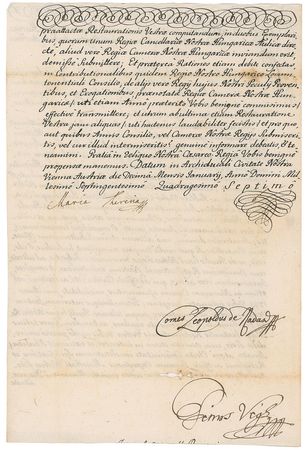 praattactae Restaurationis Vestrae computandum, in duobus Exemplari-
bus, quorum unum Regiae Cancellariae Nostrae Hungarico Aulicae dirige-
de, aliud vero Regiae Camerae Nostrae Hungaricae
demisse Submittere; Et praeterea Rationes etiam debite confectas
in Contributionalibus quidem Regio Nostro Hungarico Locum-
tenentiali Consilio, de aliis vero Regni hujus Nostri Proven-
tibus, et Erogationibus, praenotatae Camerae Nostrae Hun-
garicae; uti etiam Anno praeterito Vobis benigne commisimus
effective transmittere, et utrum ab ultima etiam Restauratione
Vestra, jam aliquas, uti hactenus laudabiliter fecistis; et pro quo
aut quibus Annis Consilio, vel Camerae Nostrae Regiae Submiseri-
tis, vel cur illud intermiseritis? genuine informare debeatis, et te-
neamini. Gratia in reliquo Nostra Caesareo Regia Vobis benigne
propensae manemus. Datum in Archiducali Civitate Nostra
Vienna Austriae die Decima Mensis January, Anno Domini Mil-
lesimo Septingentesimo Quadragesimo Septimo
Maria Theresia
Comes Leopoldus de Nadasd
Petrus Vegh